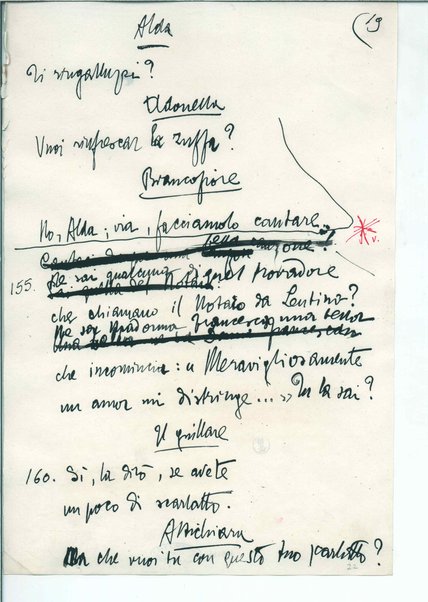 19
Alda
Ti ringalluzzi?
Adonella
Vuoi rinfrescar la zuffa?
Biancofiore
No, Alda; via, facciamolo cantare.
canzone?
Ne sai qualcuna
155. di quel trovadore
che chiamano il Notaro da Lentino?
che incomincia: « Meravigliosamente
un amor mi distringe... » Tu la sai?
Il giullare
160. Sì, la dirò, se avete
un poco di scarlatto.
Altichiara
Ma che vuoi tu con questo tuo scarlatto?
22